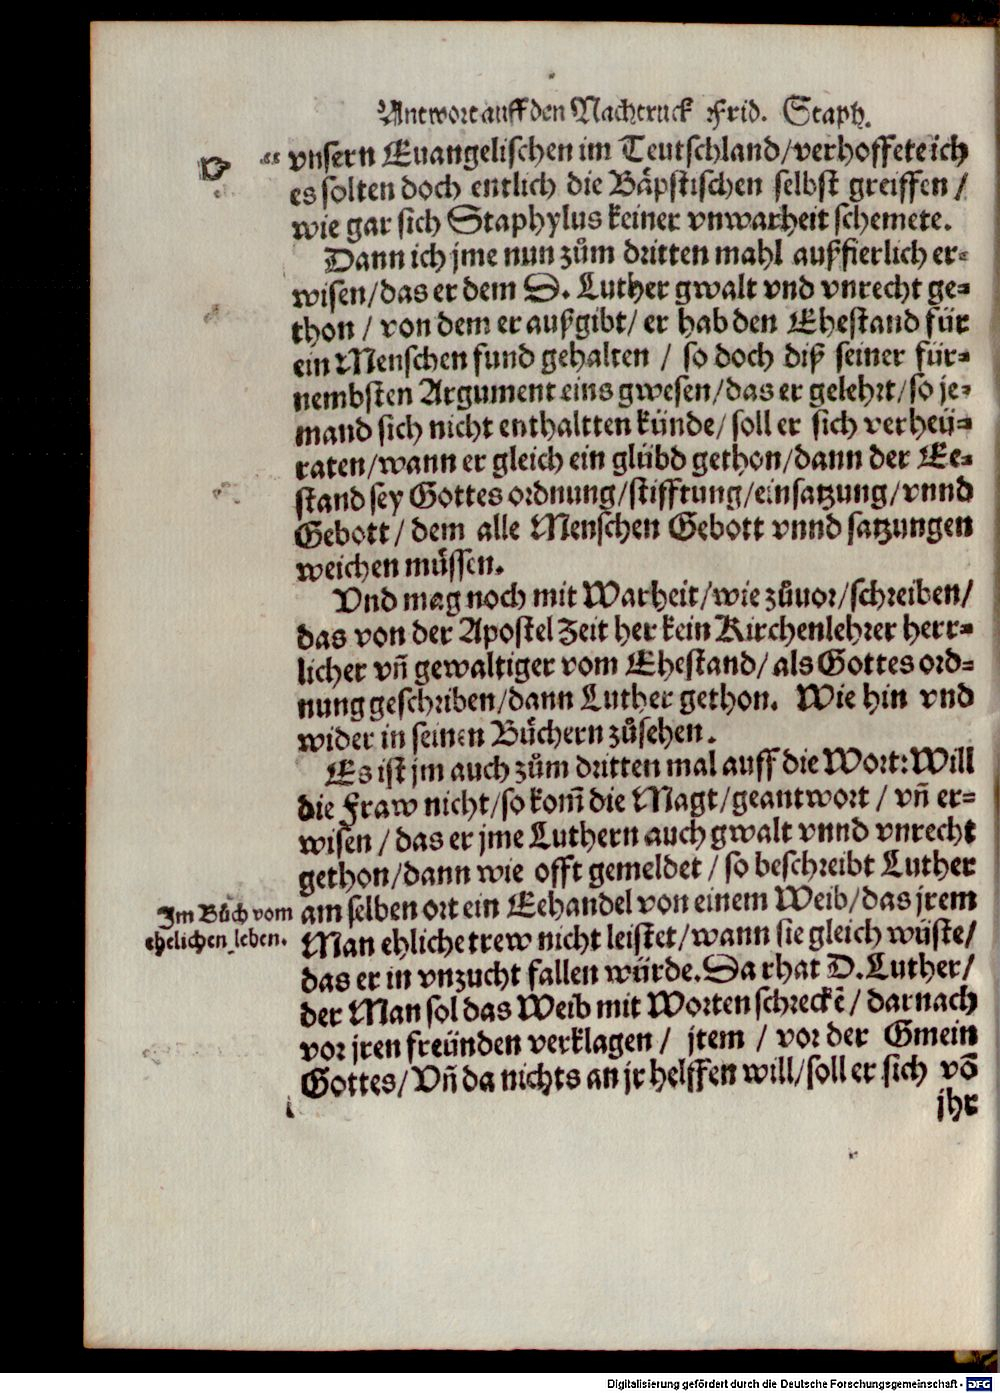 Antwort auff den Nachtruck Frid. Staph.
☞ “ vnsern Euangelischen im Teutschland/verhoffete ich
es solten doch entlich die Bäpstischen selbst greiffen /
wie gar sich Staphylus keiner vnwarheit schemete.
Dann ich jme nun zům dritten mahl außfierlich er-
wisen/das er dem D. Luther gwalt vnd vnrecht ge-
thon / von dem er außgibt/ er hab den Ehestand für
ein Menschen fund gehalten / so doch diß seiner für-
nembsten Argument eins gwesen/das er gelehrt/so je-
mand sich nicht enthaltten künde/ soll er sich verheü-
raten/wann er gleich ein glübd gethon/dann der Ee-
stand sey Gottes ordnung/stifftung/einsatzung/vnnd
Gebott / dem alle Menschen Gebott vnnd satzungen
weichen müssen.
Vnd mag noch mit Warheit/wie zůuor/schreiben/
das von der Apostel Zeit her kein Kirchenlehrer herr-
licher vñ gewaltiger vom Ehestand/ als Gottes ord-
nung geschriben/dann Luther gethon. Wie hin vnd
wider in seinen Büchern zůsehen.
Es ist jm auch zům dritten mal auff die Wort: Will
die Fraw nicht/so kom̃ die Magt/geantwort / vñ er-
wisen / das er jme Luthern auch gwalt vnnd vnrecht
gethon/dann wie offt gemeldet / so beschreibt Luther
Im Bůch vom
ehelichen leben.
am selben ort ein Eehandel von einem Weib/das jrem
Man ehliche trew nicht leistet/wann sie gleich wüste/
das er in vnzucht fallen würde. Da rhat D. Luther/
der Man sol das Weib mit Worten schreckẽ/ darnach
vor jren freünden verklagen / jtem / vor der Gmein
Gottes/ Vñ da nichts an jr helffen will/soll er sich võ
jhr
Digitalisierung gefördert durch die Deutsche Forschungsgemeinschaft - DFG